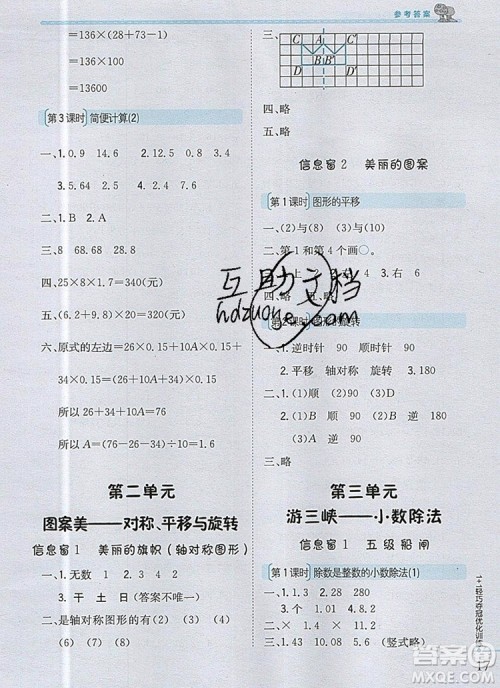 参考答案
=136×(28+73-1)
=136×100
=13600
第3课时 简便计算(2)
一、1. 0.9 14.6 2. 12.5 0.8
3. 7.5 2.64 4. 21 25.2
二、1. B 2. A
三、8 68.68 28.8
四、25×8×1.7=340(元)
五、(6.2+9.8)×20=320(元)
六、原式的左边=26×0.15+34×0.15+
10A×0.15=(26+10A+34)×0.15
所以26+34+10A=76
所以A=(76-26-34)÷10=1.6
第二单元
图案美——对称、平移与旋转
信息窗1 美丽的旗帜(轴对称图形)
一、1. 无数 1 2. 4
3. 干 土 日 (答案不唯一)
二、是轴对称图形的有(1) (2) (3) (4)
(6) (7) (8)
A C A′ C′
D B B′ D′
四、略
信息窗2 美丽的图案
第1课时 图形的平移
一、(2)与(8) (3)与(6)
二、第1和第4个画○。
三、1. 上 4 2. 左 4 3. 右 6
四、略 五、略
第2课时 图形的旋转
一、1. 逆时针 90 顺时针 90
2. 平移 轴对称 旋转
二、1. (1)顺 90 (2)逆 90
2. (1)B 顺 90 (2)A 逆 90
(3)B 逆 180
三、略
第三单元
游三峡——小数除法
信息窗1 五级船闸
第1课时 除数是整数的小数除法(1)
一、1. 2.28 280
2. 1.3 1.31 2.9 9.3
二、4.31 10.08 5.6 (竖式略)
1+1轻巧夺冠优化训练
17
互助文档
hdzuoye.com
答案圈
MXQE.COM